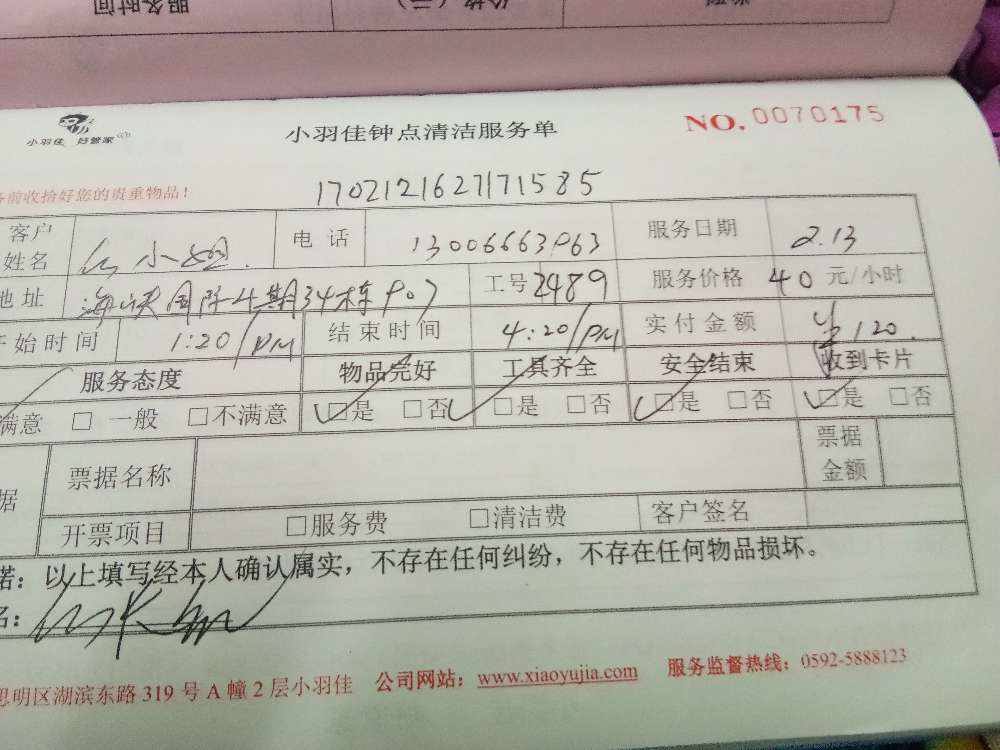 服务时间 价格(元)
小羽佳 好管家
小羽佳钟点清洁服务单
NO.0070175
务前收拾好您的贵重物品！
1702121627171585
客户姓名 小姐 电话 13006663963 服务日期 2.13
地址 海峡国际4期34栋907 工号 2489 服务价格 40 元/小时
开始时间 1:20/PM 结束时间 4:20/PM 实付金额 ¥120.
服务态度 物品完好 工具齐全 安全结束 收到卡片
满意 □ 一般 □不满意 □是 □否 □是 □否 □是 □否 □是 □否
据 票据名称 票据金额
开票项目 □服务费 □清洁费 客户签名
诺：以上填写经本人确认属实，不存在任何纠纷，不存在任何物品损坏。
名：
思明区湖滨东路 319 号 A 幢 2 层小羽佳 公司网站：www.xiaoyujia.com 服务监督热线：0592-5888123